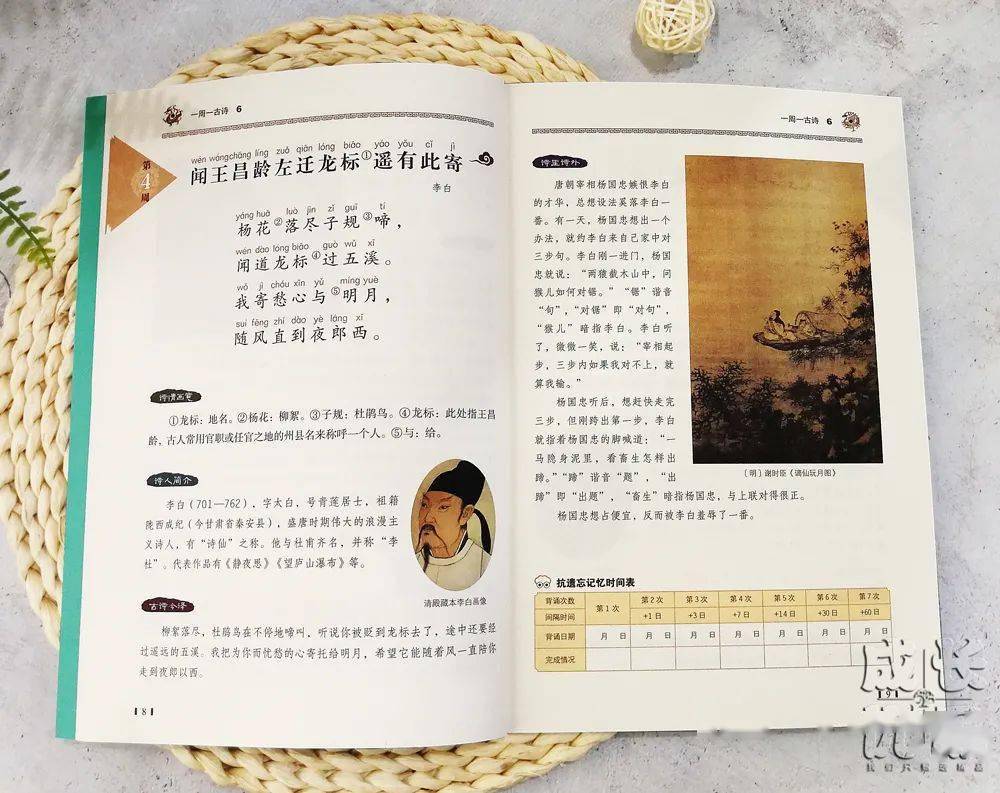 一周一古诗 6
第4周
wén wángchāng líng zuǒ qiān lóng biāo yáo yǒu cǐ jì
闻王昌龄左迁龙标①遥有此寄
李白
yáng huā luò jìn zǐ guī tí
杨花②落尽子规③啼，
wén dào lóng biāo guò wǔ xī
闻道龙标④过五溪。
wǒ jì chóu xīn yǔ míng yuè
我寄愁心与⑤明月，
suí fēng zhí dào yè láng xī
随风直到夜郎西。
诗情画笔
①龙标：地名。②杨花：柳絮。③子规：杜鹃鸟。④龙标：此处指王昌
龄，古人常用官职或任官之地的州县名来称呼一个人。⑤与：给。
诗人简介
李白（701—762），字太白，号青莲居士，祖籍
陇西成纪（今甘肃省秦安县），盛唐时期伟大的浪漫主
义诗人，有“诗仙”之称。他与杜甫齐名，并称“李
杜”。代表作品有《静夜思》《望庐山瀑布》等。
清殿藏本李白画像
古诗今译
柳絮落尽，杜鹃鸟在不停地啼叫，听说你被贬到龙标去了，途中还要经
过遥远的五溪。我把为你而忧愁的心寄托给明月，希望它能随着风一直陪你
走到夜郎以西。
8
一周一古诗 6
诗里诗外
唐朝宰相杨国忠嫉恨李白
的才华，总想设法奚落李白一
番。有一天，杨国忠想出一个
办法，就约李白来自己家中对
三步句。李白刚一进门，杨国
忠就说：“两猿截木山中，问
猴儿如何对锯。”“锯”谐音
“句”，“对锯”即“对句”，
“猴儿”暗指李白。李白听
了，微微一笑，说：“宰相起
步，三步内如果我对不上，就
算我输。”
杨国忠听后，想赶快走完
三步，但刚跨出第一步，李白
就指着杨国忠的脚喊道：“一
马隐身泥里，看畜生怎样出
蹄。”“蹄”谐音“题”，“出
蹄”即“出题”，“畜生”暗指杨国忠，与上联对得很正。
杨国忠想占便宜，反而被李白羞辱了一番。
〔明〕谢时臣《谪仙玩月图》
抗遗忘记忆时间表
背诵次数 第1次 第2次 第3次 第4次 第5次 第6次 第7次
间隔时间 +1日 +3日 +7日 +14日 +30日 +60日
背诵日期 月 日 月 日 月 日 月 日 月 日 月 日 月 日
完成情况
成长
我们只标选精品